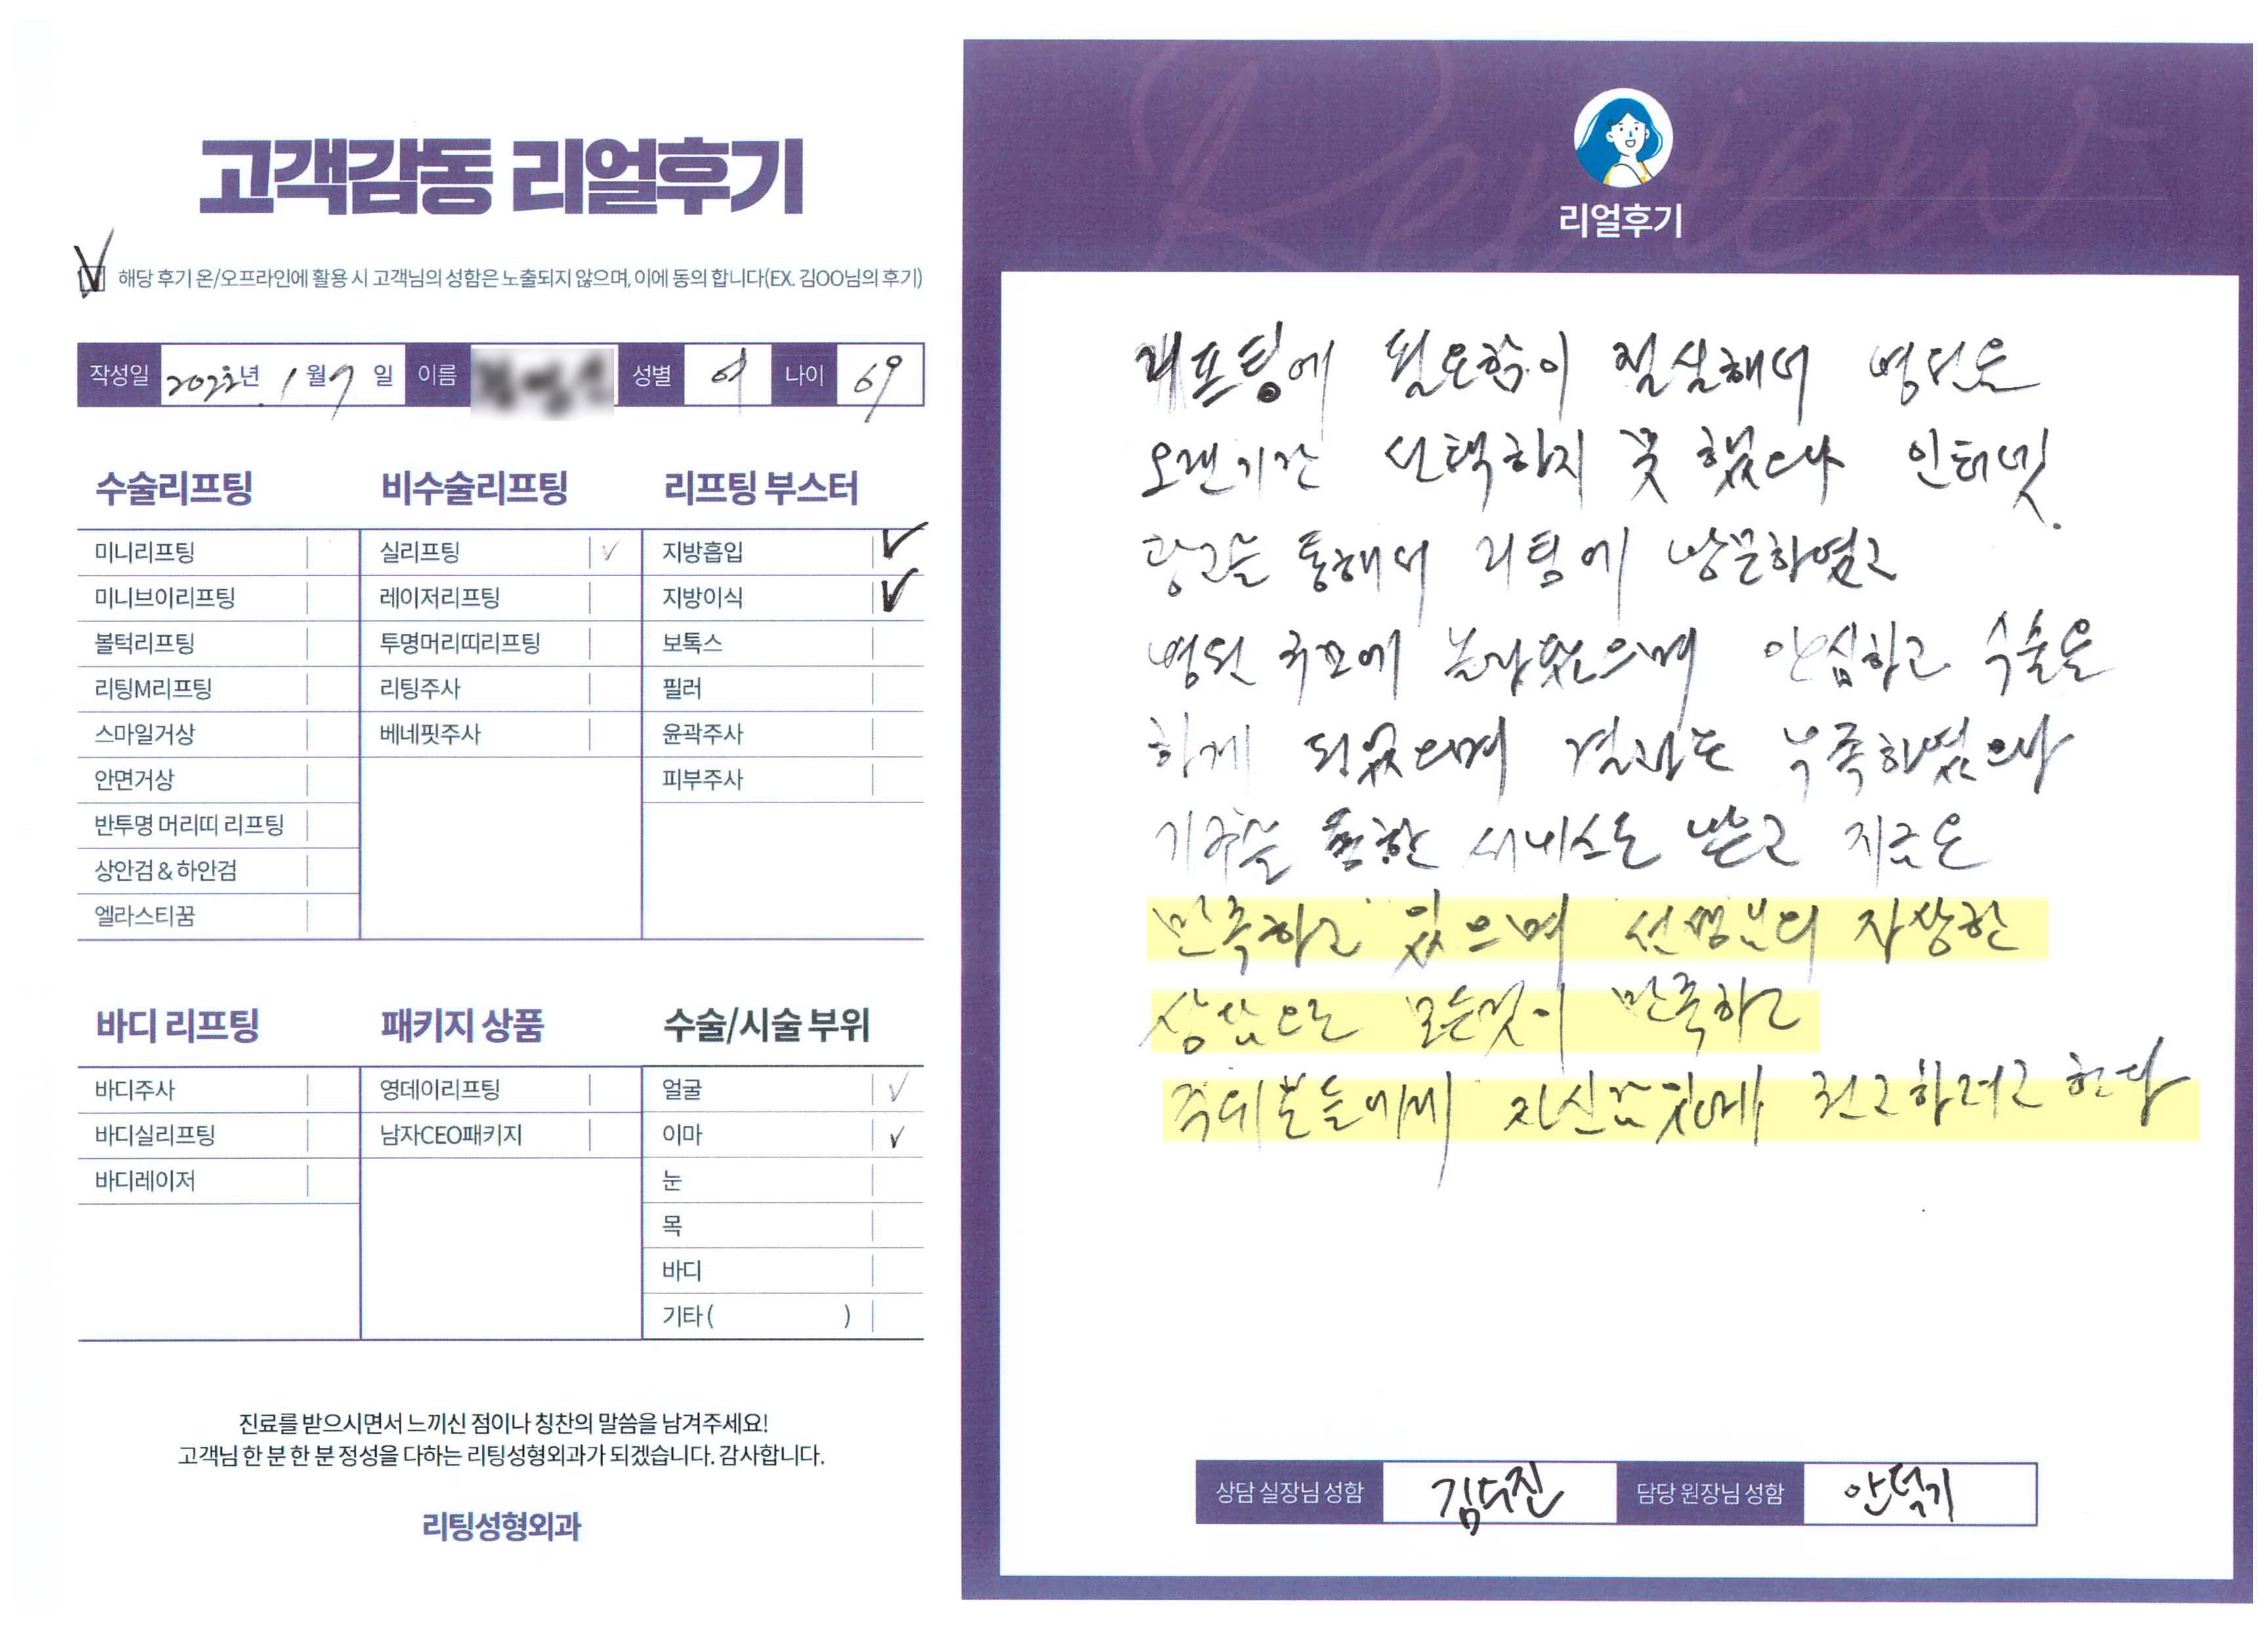 고객감동 리얼후기
해당 후기 온/오프라인에 활용 시 고객님의 성함은 노출되지 않으며, 이에 동의 합니다(EX. 김OO님의 후기)
작성일 2022년 1월 7일 이름 성별 여 나이 69
수술리프팅
미니리프팅
미니브이리프팅
볼턱리프팅
리팅M리프팅
스마일거상
안면거상
반투명 머리띠 리프팅
상안검 & 하안검
엘라스티꿈
비수술리프팅
실리프팅
레이저리프팅
투명머리띠리프팅
리팅주사
베네핏주사
리프팅 부스터
지방흡입
지방이식
보톡스
필러
윤곽주사
피부주사
바디 리프팅
바디주사
바디실리프팅
바디레이저
패키지 상품
영데이리프팅
남자CEO패키지
수술/시술 부위
얼굴
이마
눈
목
바디
기타 ( )
진료를 받으시면서 느끼신 점이나 칭찬의 말씀을 남겨주세요!
고객님 한 분 한 분 정성을 다하는 리팅성형외과가 되겠습니다. 감사합니다.
리팅성형외과
Review
리얼후기
리프팅에 필요함이 절실해서 병원을
오랜기간 선택하지 못 했으나 인터넷.
광고를 통해서 리팅에 방문하였고
병원 규모에 놀라웠으며 안심하고 수술을
하게 되었으며 결과는 부족하였으나
서비스도 받고 지금은
만족하고 있으며 선생님의 자상한
상담으로 모든것이 만족하고
주위분들에게 자신감있게 권고하려고 한다
상담 실장님 성함 김수진 담당 원장님 성함 안덕기